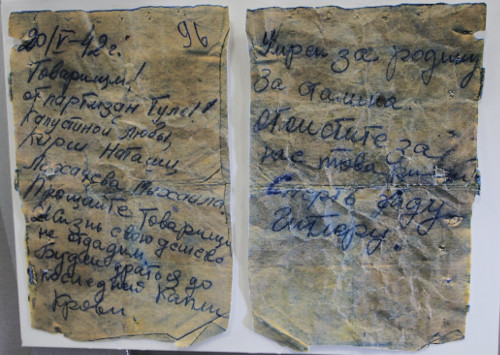 20/V-42г.
96
Товарищи!
от партизан Тулы!
Капустиной Любы,
Курси Наташи,
Лихачева Михаила.
Прощайте Товарищи
жизнь свою дешево
не отдадим.
Будем драться до
последней Капли
Крови
Умрем за родину
За Сталина
отомстите за
нас това
Смерть гаду
Гитлеру.